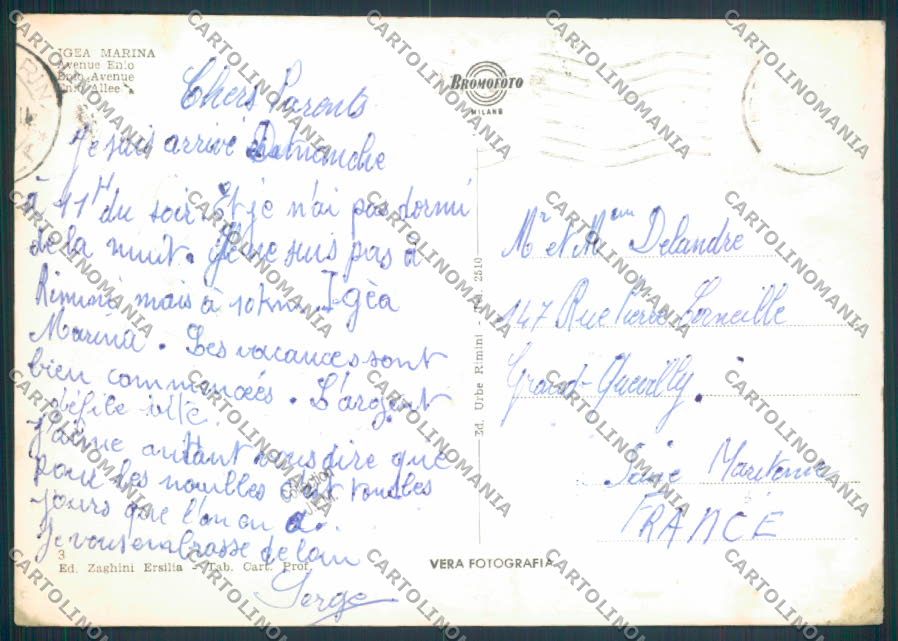 IGEA MARINA
Avenue Enio
Enio Avenue
Enio Allee
BROMOFOTO
MILANO
Chers Parents
Je suis arrivé Dimanche
à 11H du soir. Et je n'ai pas dormi
de la nuit. Je ne suis pas à
Rimini mais à 10 km Igéa
Marina. Les vacances sont
bien commancées. L'argent
défile vite.
J'aime autant vous dire que
pour les nouilles c'est tous les
jours que l'on en a.
Je vous embrasse de loin
Serge
3
Ed. Zaghini Ersilia - Tab. Cart. Prof.
VERA FOTOGRAFIA
Ed. Urbe Rimini - 2510
Mr et Mem Delandre
147 Rue Pierre Corneille
Grand-Quevilly.
Seine Maritime
FRANCE
CARTOLINOMANIA